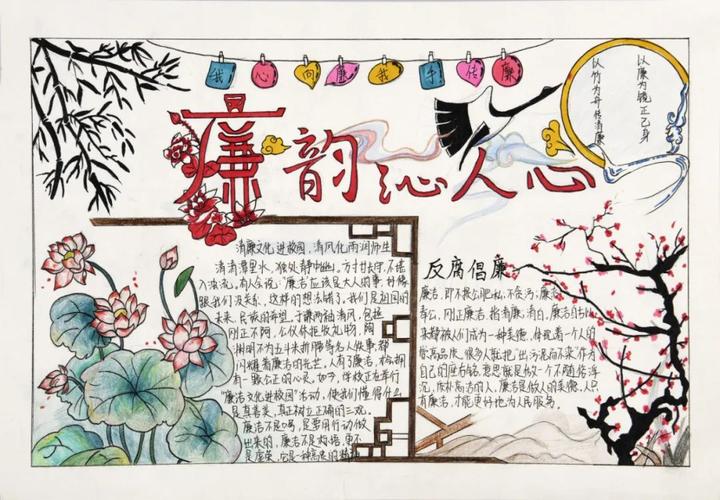 我心向廉我手传廉
廉韵沁人心
以廉为镜正己身
以竹为丹传清廉
清廉文化进校园,清风化雨润师生
清清潭里水,
入浓流。有人会说:"廉洁应该是大人的事,好像
跟我们没关系,这样的想法错了。我们是祖国的
未来,民族的希望。于谦两袖清风,包拯
刚正不阿,公仪休拒收礼物,陶
渊明不为五斗米折腰等名人轶事,都
闪耀着廉洁的光芒。人有了廉洁,
有一颗公正的心灵。如今,学校正在举行
"廉洁文化进校园"活动,使我们懂得什么
是真善美,真正树立正确的三观。
廉洁不是口号,是要用行动做
出来的,廉洁不是枚语,更不
是虚荣,它是一种高尚的精神
反腐倡廉
廉洁,即不损公肥私,不贪污;廉洁
奉公,刚正廉洁,指清廉,清白,廉洁自
来都被人们成为一种美德,体现着一个人的
崇高品质。很多人就把"出淤泥而不染"作为
自己的座右铭,意思就是做一个不随俗浮
沉,质朴高洁的人。廉洁是做人的美德,人只
有廉洁,才能更好地为人民服务。